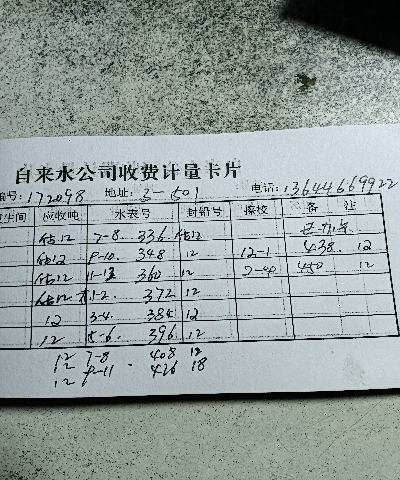 自来水公司收费计量卡片
编号:172098 地址:3-501 电话:13644669922
应收吨 水表号 封铅号 接校 备注
估12 7-8. 336 估12
估12 9-10. 348 12 12-1 438. 12
估12 11-12 360 12 2-4 450 12
估12 1-2. 372 12
12 3-4. 384 12
12 5-6. 396 12
12 7-8 408 12
12 9-11 426 18
12